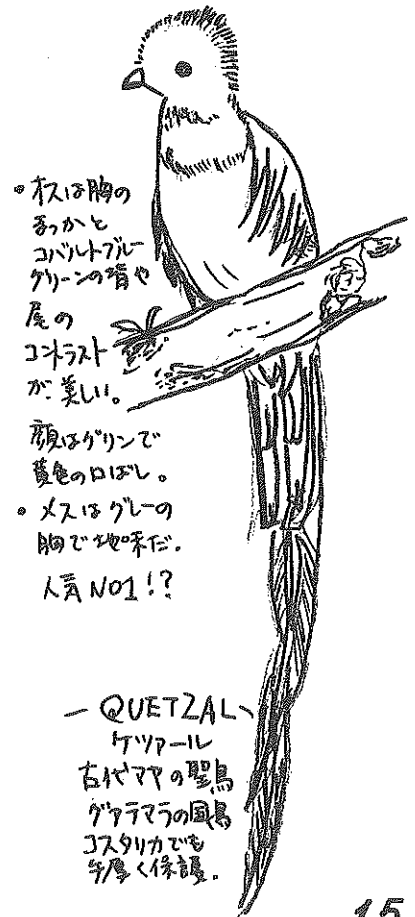 • オスは胸の
まっかと
コバルトブルー
グリーンの背や
尾の
コントラスト
が、美しい。
顔はグリンで
黄色の口ばし。
• メスはグレーの
胸で地味だ。
人気NO1!?
— QUETZAL、
ケツァール
古代マヤの聖鳥
グァテマラの国鳥
コスタリカでも
手厚く保護。
15